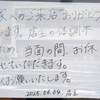 客へのご来店ありがとう
ます。店主の体調不
ため、当面の間 お休
せていただきます。
お願いいたします。
2025.04.04 店主